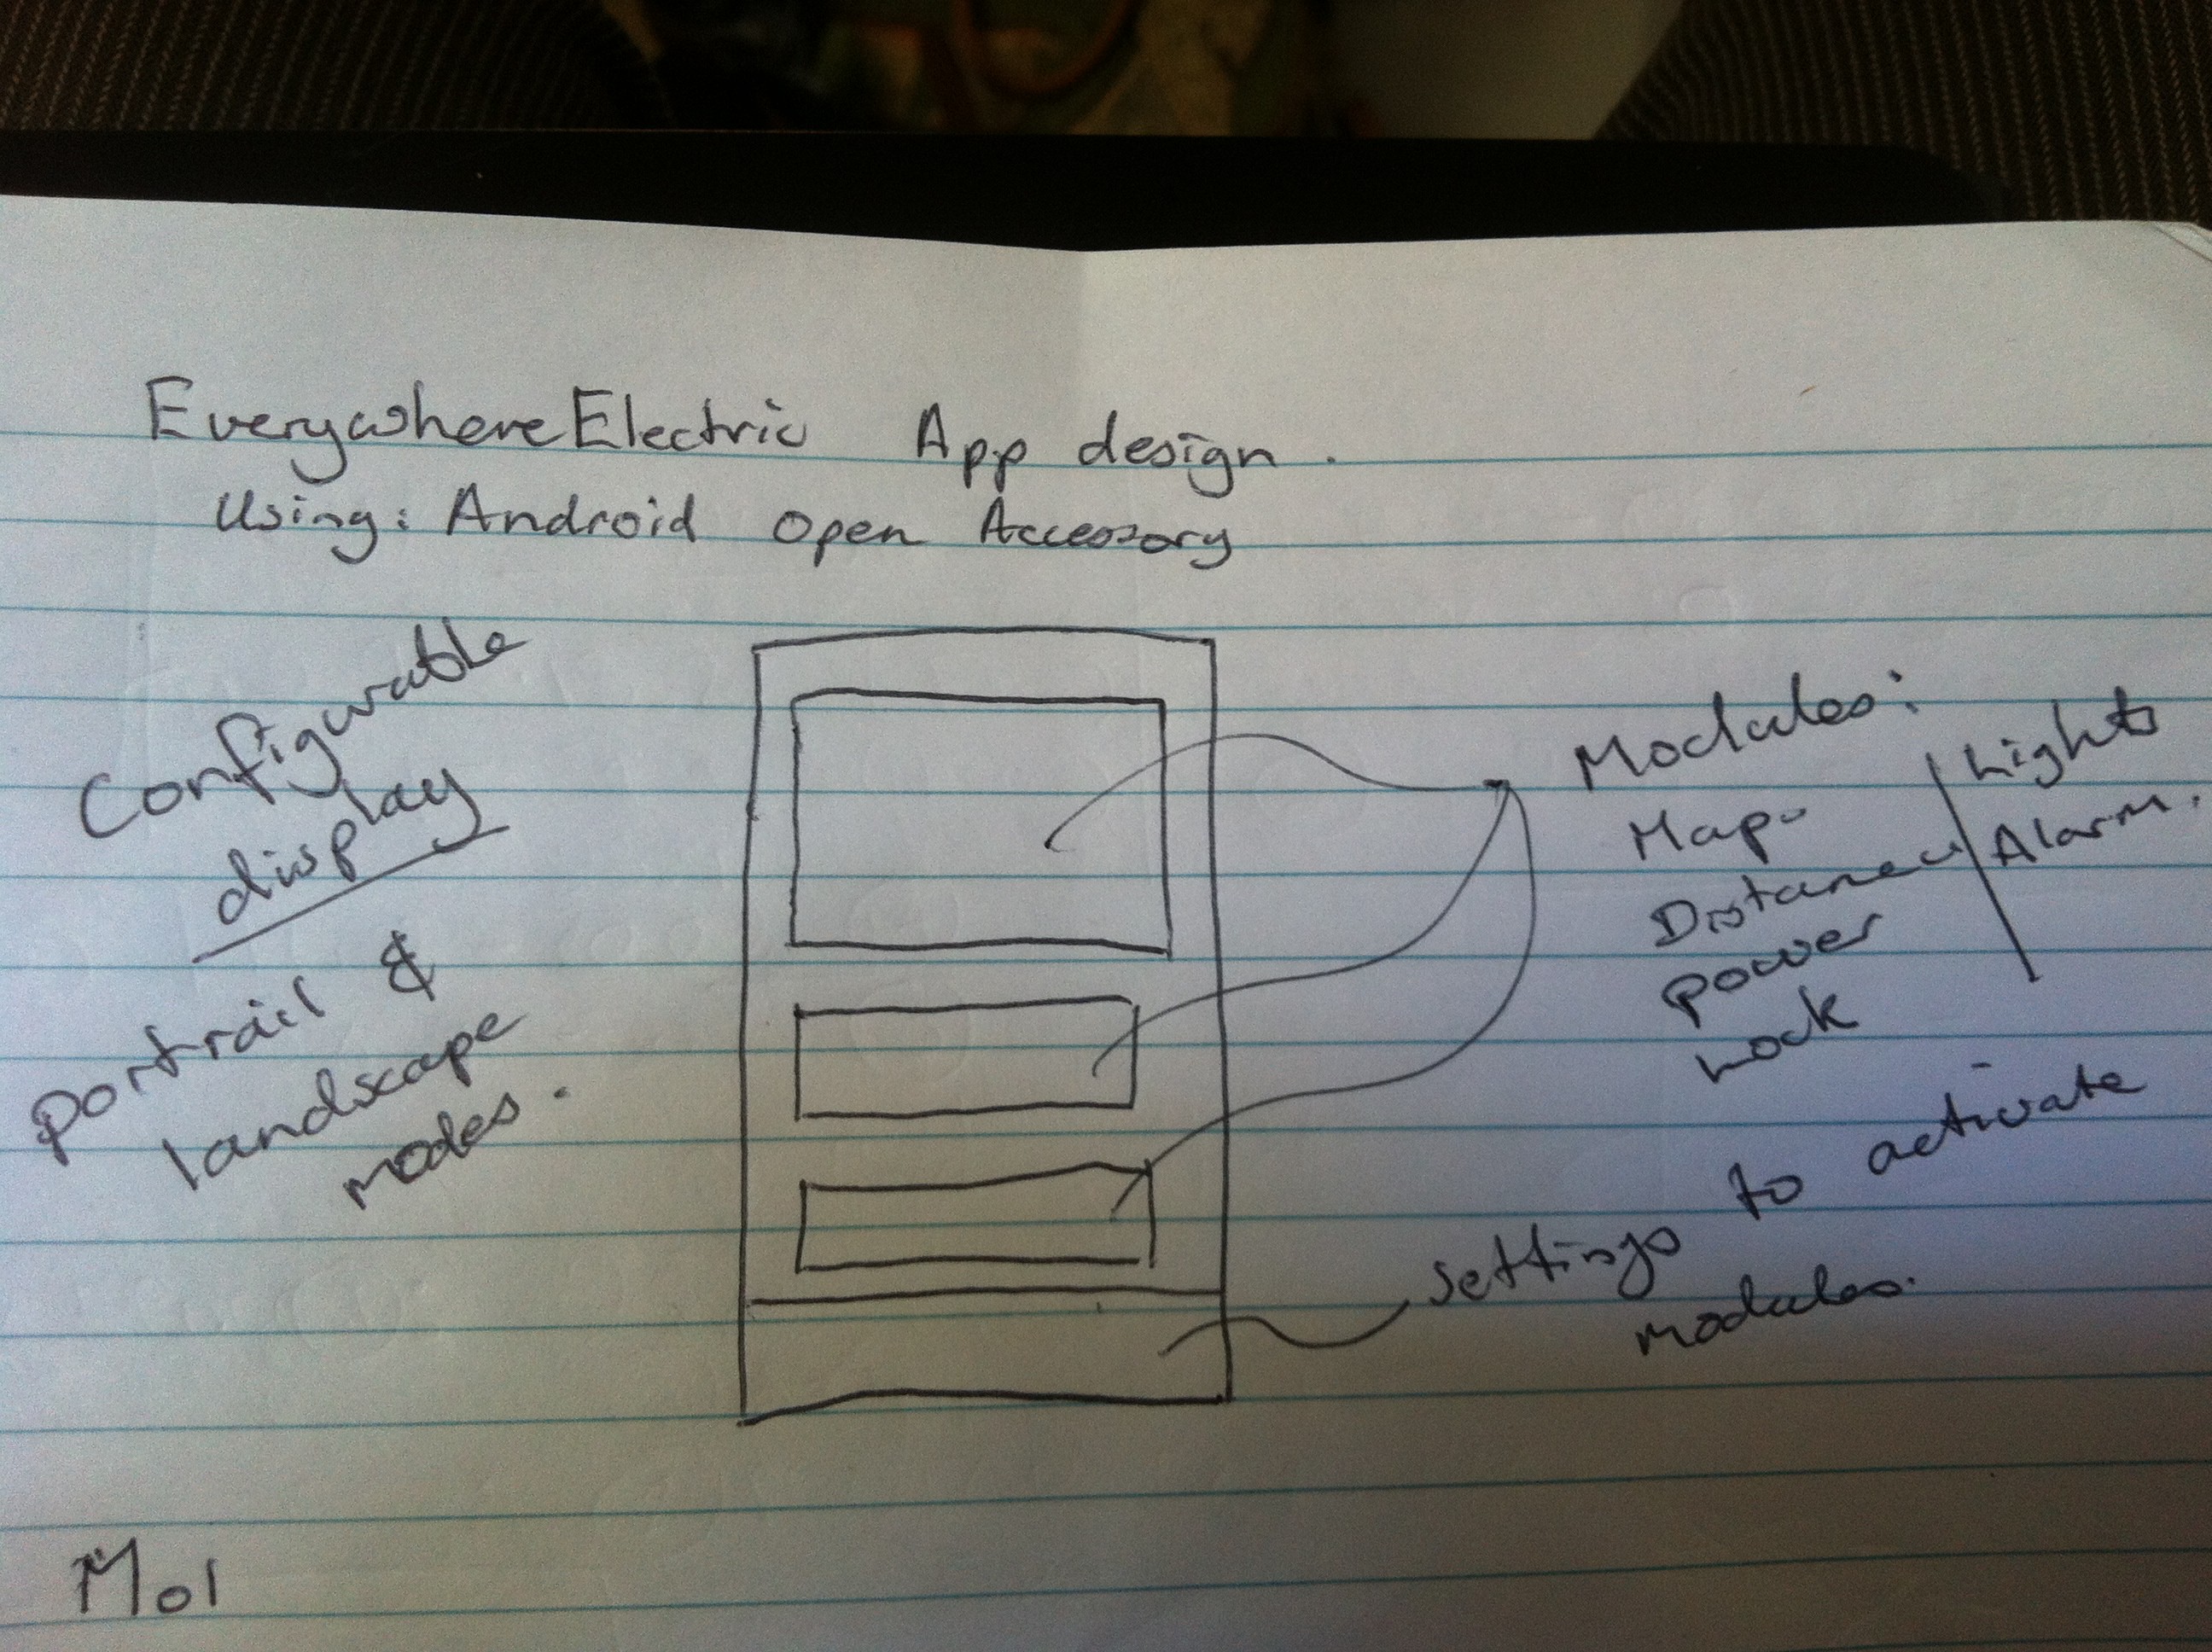 EverywhereElectric App design.
Using: Android Open Accessory
Configurable
display
portrait &
landscape
modes.
Modules:
Map
Distance
power
Lock
Lights
Alarm.
settings to activate
modules.